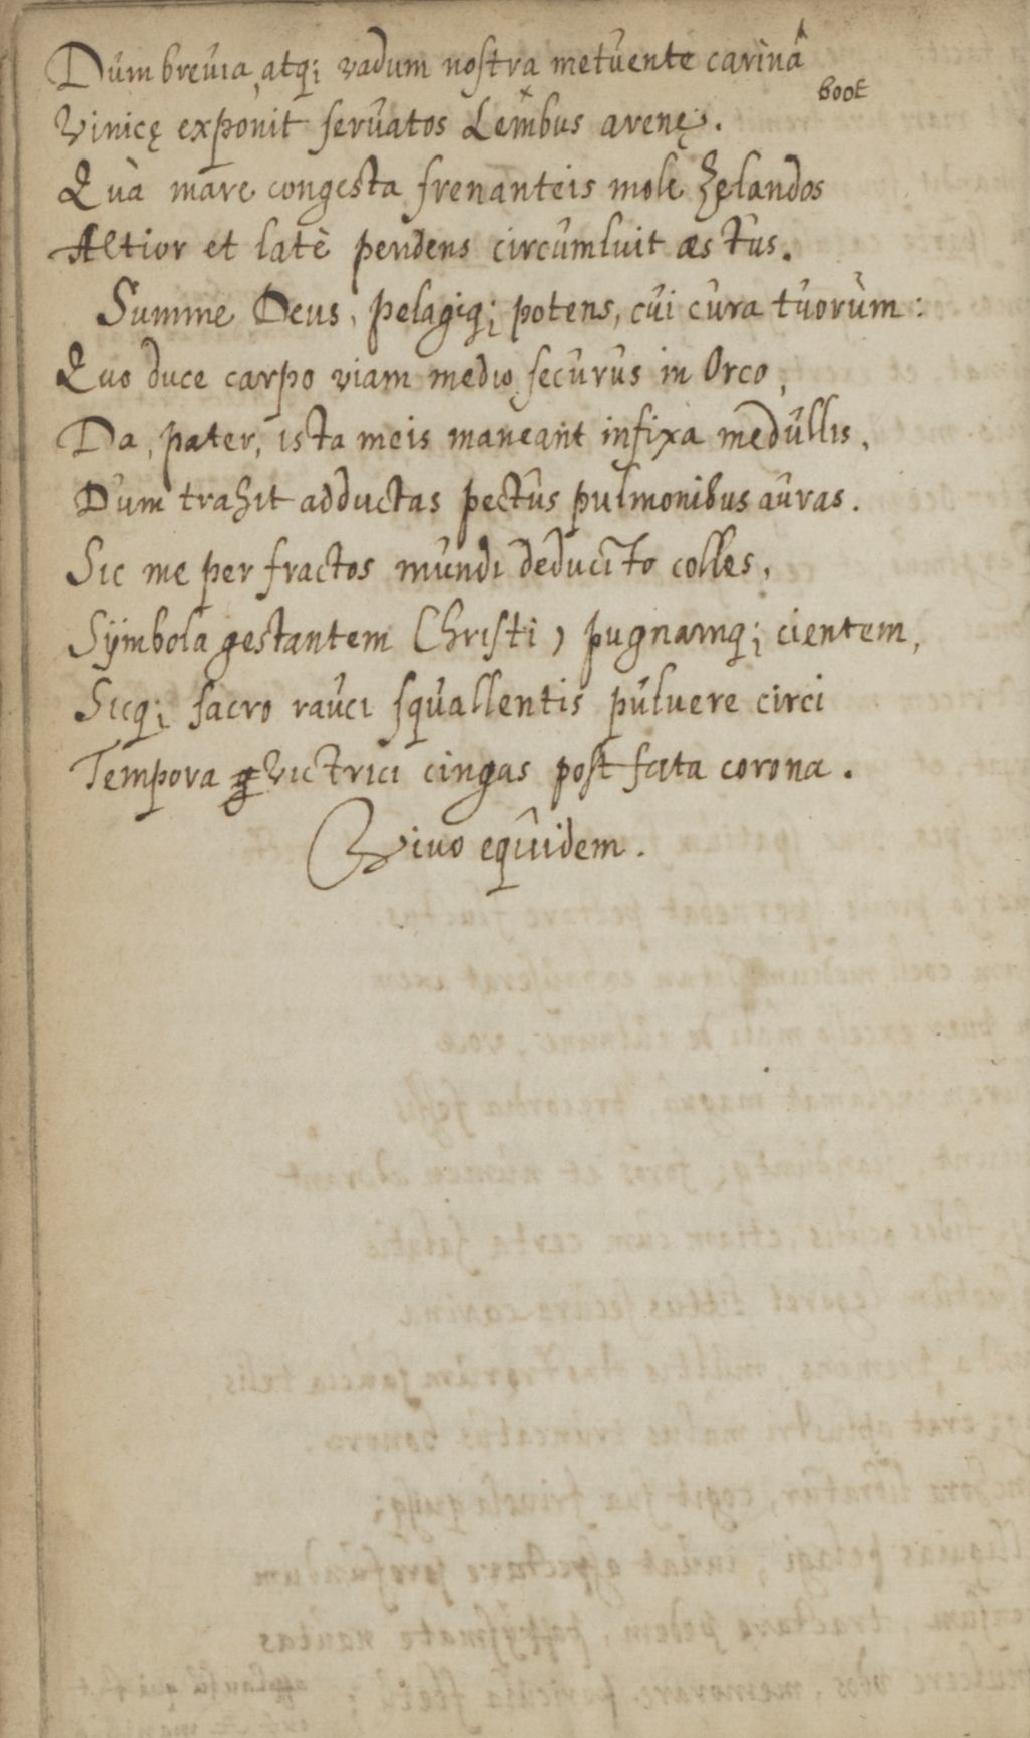 Dum breuia, atq; vadum nostra metuente carinâ
Vinicę exponit seruatos Lembus arenę.
boot
Quà mare congesta frenanteis mole Zelandos
Altior et latè pendens circumluit æstus.
Summe Deus, pelagiq; potens, cui cura tuorum:
Quo duce carpo viam medio securus in Orco,
Da, pater, ista meis maneant infixa medullis,
Dum trahit adductas pectus pulmonibus auras.
Sic me per fractos mundi deducito colles,
Symbola gestantem Christi, pugnamq; cientem,
Sicq; sacro rauci squallentis puluere circi
Tempora victrici cingas post fata corona.
Viuo equidem.